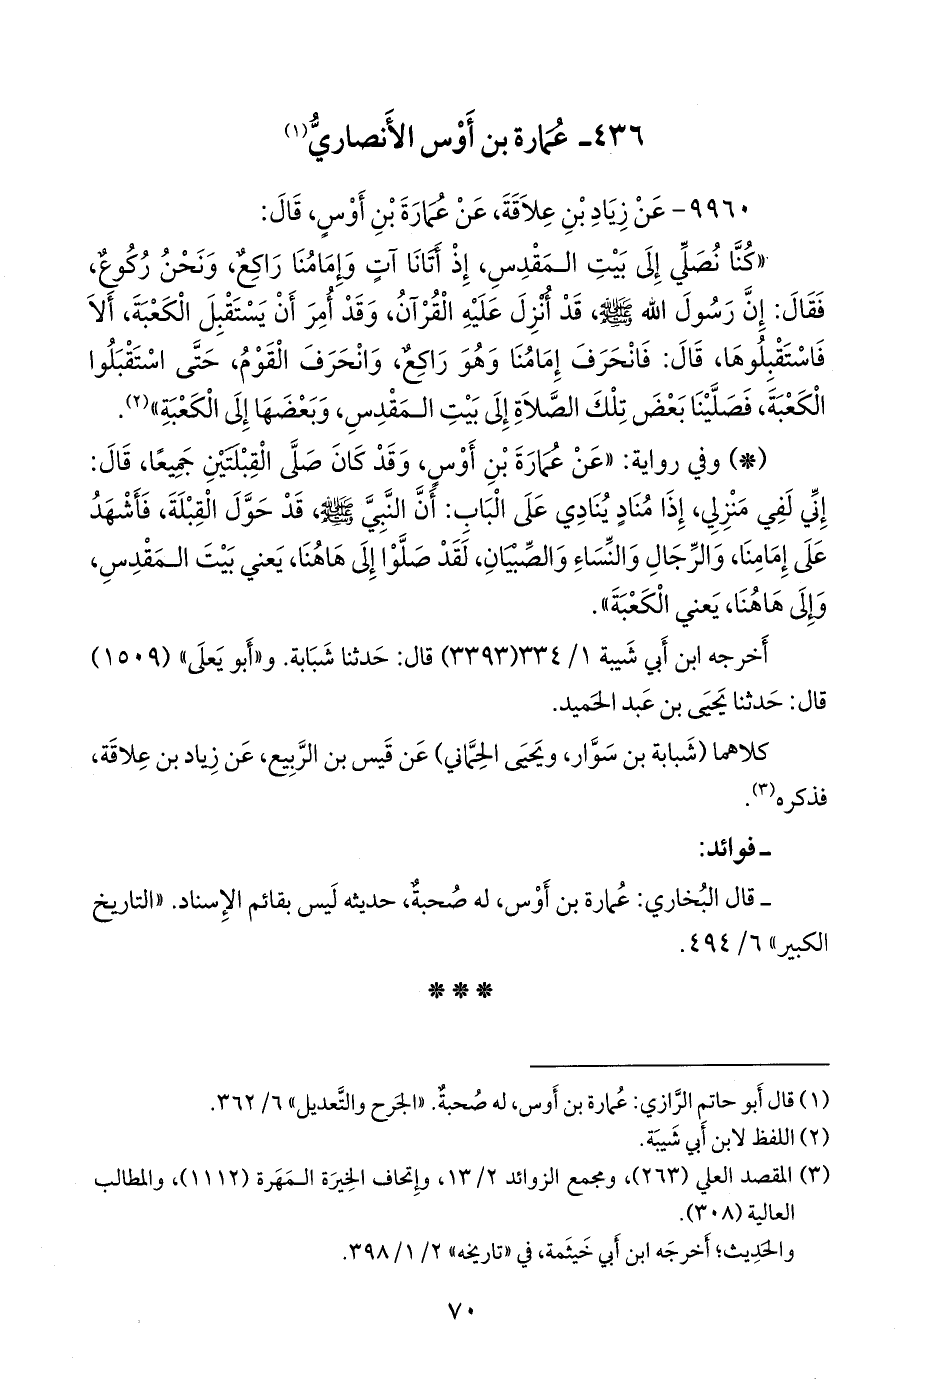 ٤٣٦- عُمارة بن أَوْس الأَنصاريُّ(١)
٩٩٦٠- عَنْ زِيَادِ بْنِ عِلاَقَةَ، عَنْ عُمَارَةَ بْنِ أَوْسٍ، قَالَ:
«كُنَّا نُصَلِّي إِلَى بَيْتِ الـمَقْدِسِ، إِذْ أَتَانَا آتٍ وَإِمَامُنَا رَاكِعٌ، وَنَحْنُ رُكُوعٌ،
فَقَالَ: إِنَّ رَسُولَ الله ﷺ، قَدْ أُنْزِلَ عَلَيْهِ الْقُرْآنُ، وَقَدْ أُمِرَ أَنْ يَسْتَقْبِلَ الْكَعْبَةَ، أَلاَ
فَاسْتَقْبِلُوهَا، قَالَ: فَانْحَرَفَ إِمَامُنَا وَهُوَ رَاكِعٌ، وَانْحَرَفَ الْقَوْمُ، حَتَّى اسْتَقْبَلُوا
الْكَعْبَةَ، فَصَلَّيْنَا بَعْضَ تِلْكَ الصَّلاَةِ إِلَى بَيْتِ الـمَقْدِسِ، وَبَعْضَهَا إِلَى الْكَعْبَةِ»(٢).
(*) وفي رواية: «عَنْ عُمَارَةَ بْنِ أَوْسٍ، وَقَدْ كَانَ صَلَّى الْقِبْلَتَيْنِ جَمِيعًا، قَالَ:
إِنِّي لَفِي مَنْزِلِي، إِذَا مُنَادٍ يُنَادِي عَلَى الْبَابِ: أَنَّ النَّبِيَّ ﷺ، قَدْ حَوَّلَ الْقِبْلَةَ، فَأَشْهَدُ
عَلَى إِمَامِنَا، وَالرِّجَالِ وَالنِّسَاءِ وَالصِّبْيَانِ، لَقَدْ صَلَّوْا إِلَى هَاهُنَا، يَعني بَيْتَ الـمَقْدِسِ،
وَإِلَى هَاهُنَا، يَعني الْكَعْبَةَ».
أَخرجه ابن أبي شَيبة ١/ ٣٣٤(٣٣٩٣) قال: حَدثنا شَبَابة. و«أَبو يَعلَى» (١٥٠٩)
قال: حَدثنا يَحيَى بن عَبد الحَميد.
كلاهما (شَبابة بن سَوَّار، ويَحيَى الحِمَّاني) عَن قَيس بن الرَّبيع، عَن زِياد بن عِلاقَة،
فذكره(٣).
ـ فوائد:
ـ قال البُخاري: عُمارة بن أَوْس، له صُحبةٌ، حديثه لَيس بقائم الإِسناد. «التاريخ
الكبير» ٦/ ٤٩٤.
* * *
(١) قال أَبو حاتم الرَّازي: عُمارة بن أَوس، له صُحبةٌ. «الجَرح والتَّعديل» ٦/ ٣٦٢.
(٢) اللفظ لابن أَبي شَيبَة.
(٣) المقصد العلي (٢٦٣)، ومجمع الزوائد ٢/ ١٣، وإِتحاف الخِيرَة الـمَهَرة (١١١٢)، والمطالب
العالية (٣٠٨).
والحَدِيث؛ أَخرجَه ابن أَبي خَيثَمة، في «تاريخه» ٢/ ١/ ٣٩٨.
٧٠